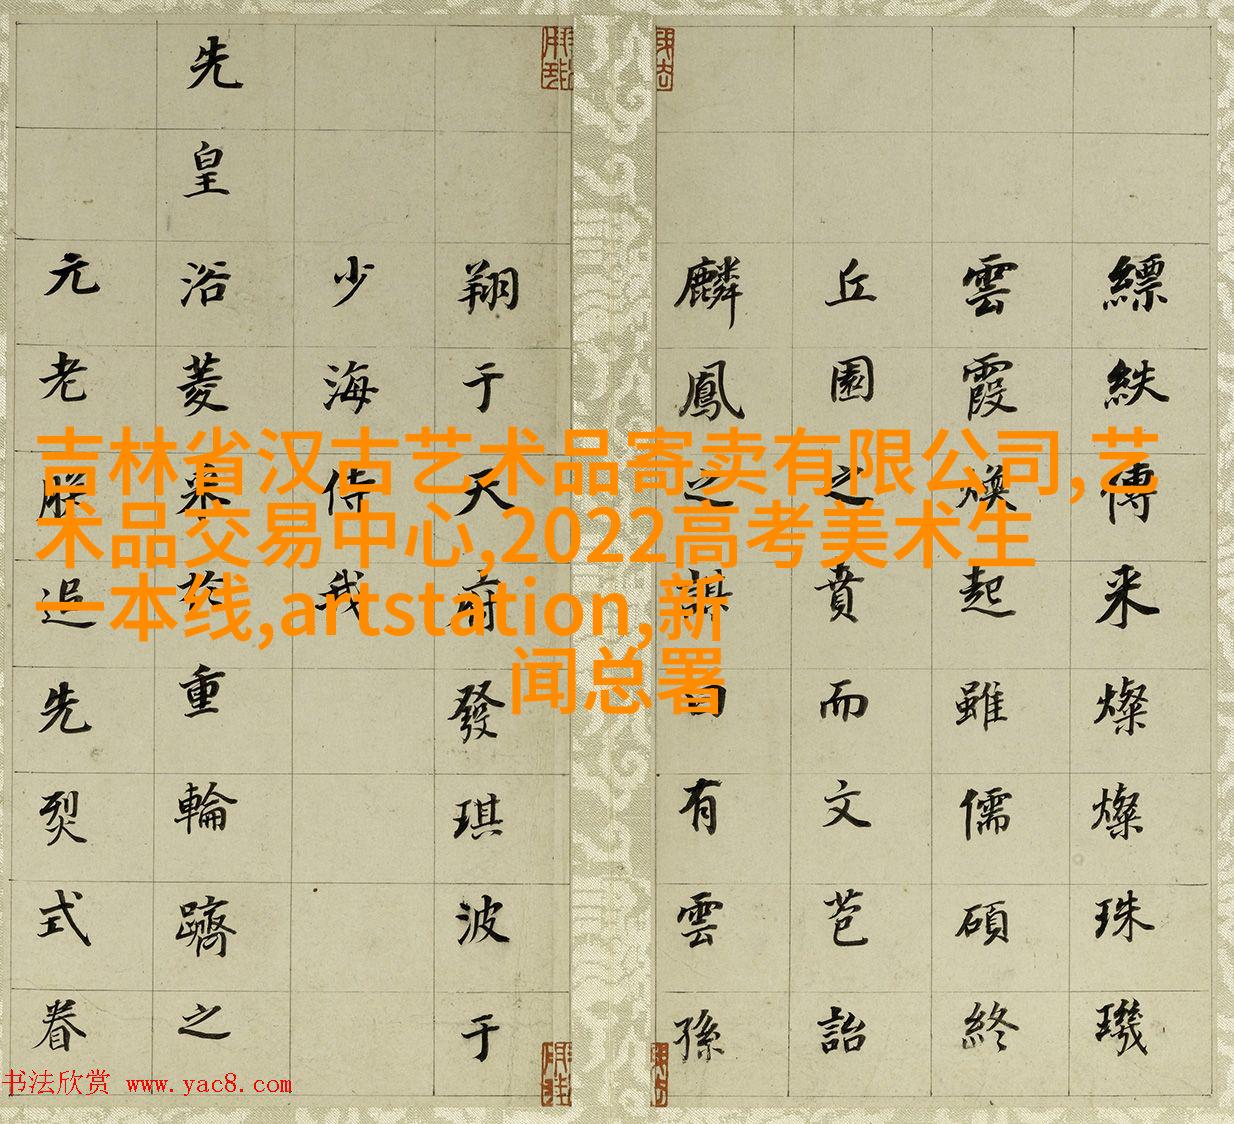 縹紩傳来燦燦珠璣
雲霞煥起雖儒碩終
丘園之賁而文苞詒
麟鳳之有雲孫
翔于天府發琪波于
少海侍我
先皇浴菱采於重輪躋之
元老朕追先烈式眷
吉林省汉古艺术品寄卖有限公司,艺
术品交易中心,2022高考美术生
一本线,artstation,新
闻总署
书法欣赏 www.yac8.com